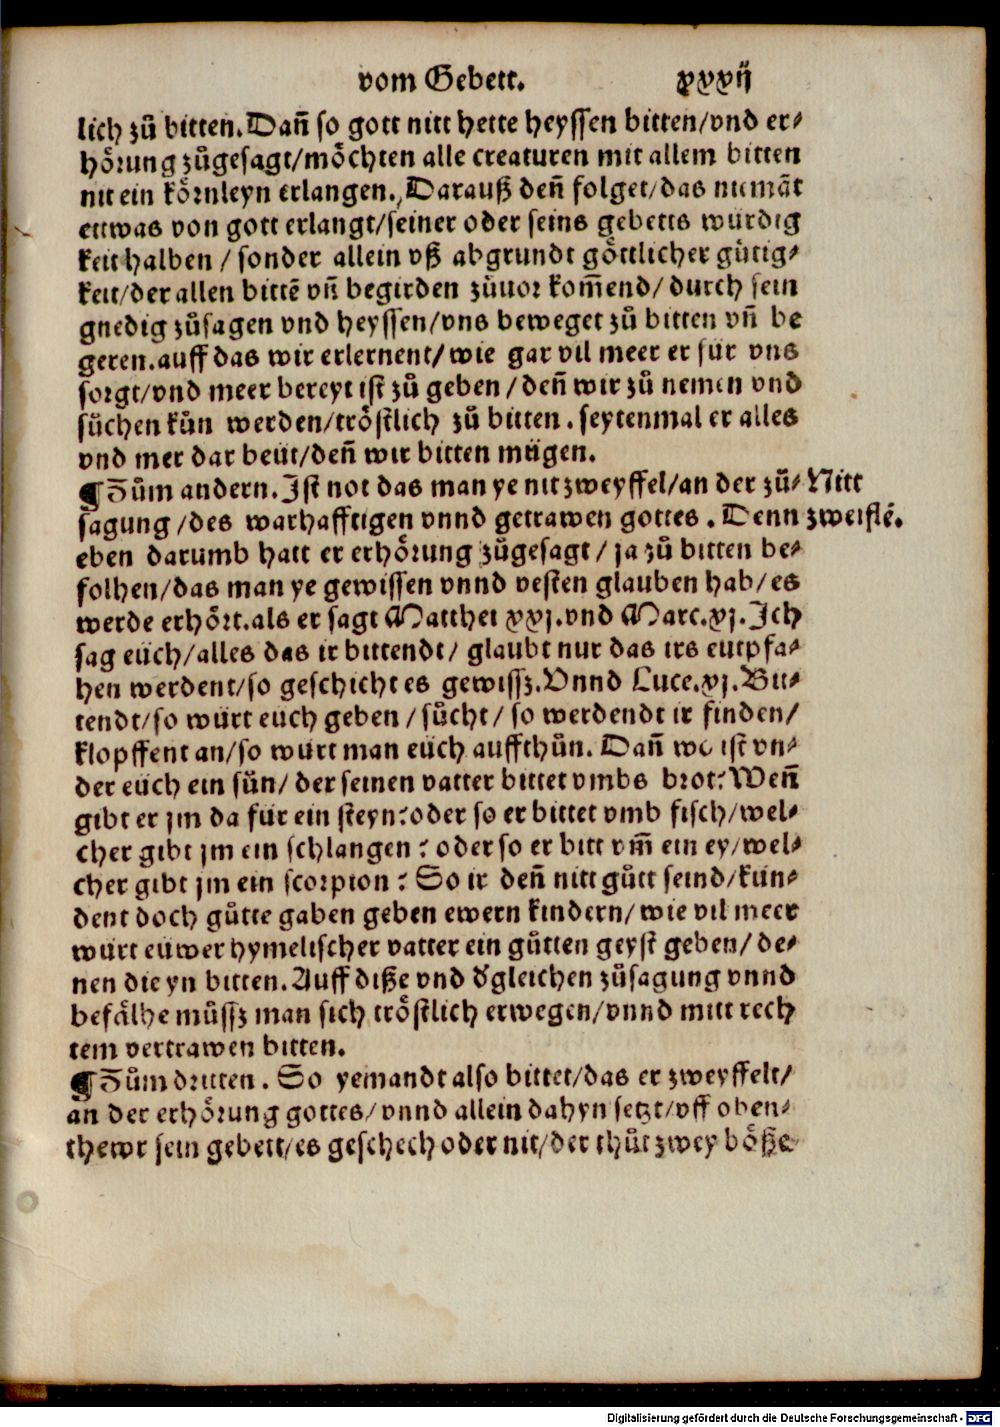 vom Gebett. xxxij
lich zů bitten. Dañ so gott nitt hette heyssen bitten/vnd er-
hörung zůgesagt/möchten alle creaturen mit allem bitten
nit ein körnleyn erlangen. Darauß deñ folget/das niemãt
ettwas von gott erlangt/seiner oder seins gebetts würdig
keit halben / sonder allein vß abgrundt göttlicher gütig-
keit/der allen bittē vñ begirden zůuor kom̃end/ durch sein
gnedig zůsagen vnd heyssen/vns beweget zů bitten vñ be
geren.auff das wir erlernent/wie gar vil meer er für vns
sorgt/vnd meer bereyt ist zů geben / deñ wir zů nemen vnd
sůchen kün werden/tröstlich zů bitten . seytenmal er alles
vnd mer dar beüt/deñ wir bitten mügen.
¶Zům andern. Ist not das man ye nit zweyffel/an der zů- Nitt
sagung /des warhafftigen vnnd getrawen gottes . Denn zweiflē.
eben darumb hatt er erhörung zůgesagt / ja zů bitten be-
folhen/das man ye gewissen vnnd vesten glauben hab/es
werde erhört.als er sagt Matthei xxj.vnd Marc.xj. Ich
sag eüch/alles das ir bittendt/ glaubt nur das irs entpfa-
hen werdent/so geschicht es gewissz.Vnnd Luce.xj. Bit-
tendt/so würt euch geben / sůcht / so werdendt ir finden/
klopffent an/so würt man eüch auffthůn. Dañ wo ist vn-
der eüch ein sůn/ der seinen vatter bittet vmbs brot? Weñ
gibt er jm da für ein steyn?oder so er bittet vmb fisch/wel-
cher gibt jm ein schlangen ? oder so er bitt vm̃ ein ey/wel-
cher gibt jm ein scorpion ? So ir deñ nitt gůtt seind/kün-
dent doch gůtte gaben geben ewern kindern/ wie vil meer
würt eüwer hymelischer vatter ein gůtten geyst geben/ de-
nen die yn bitten. Auff diße vnd d'gleichen zůsagung vnnd
befälhe můssz man sich tröstlich erwegen/vnnd mitt rech
tem vertrawen bitten.
¶Zům dritten . So yemandt also bittet/das er zweyffelt/
an der erhörung gottes/ vnnd allein dahyn setzt/vff oben-
thewr sein gebett/es geschech oder nit/der thůt zwey böße
Digitalisierung gefördert durch die Deutsche Forschungsgemeinschaft - DFG